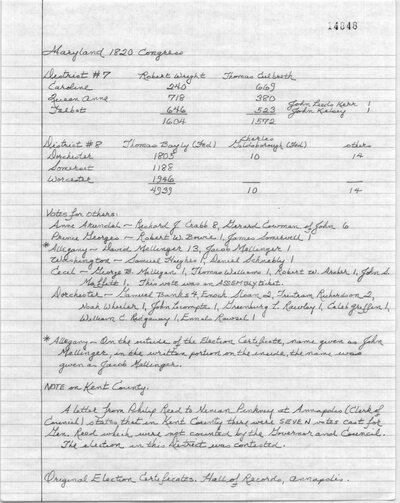 14848
Maryland 1820 Congress
District #7 Robert Wright Thomas Culbreth
Caroline 240 669
Queen Anne 718 380
Talbot 646 523 John Leeds Kerr 1
John Kelsey 1
1604 1572
District #8 Thomas Bayly (Fed) Charles Goldsborough (Fed) others
Dorchester 1805 10 14
Somerset 1188
Worcester 1946
4939 10 14
Votes for Others:
Anne Arundel - Richard J. Crabb 8, Gerard Cowman, of John 6
Prince Georges - Robert W. Bowie 1, James Somervell 1
* Allegany - David Mellinger 13, Jacob Mellinger 1
Washington - Samuel Hughes 1, Daniel Schnebly 1
Cecil - George B. Milligan 1, Thomas Williams 1, Robert W. Archer 1, John S.
Moffitt 1. This vote was on ASSEMBLY ticket.
Dorchester - Samuel Banks 4, Enoch Sloan 2, Tristram Richardson 2,
Noah Wheeler 1, John Lecompte 1, Greenbury L. Rawley 1, Caleb 1,
William C. Ridgaway 1, Ennals 1
* Allegany - On the outside of the Election Certificate, name given as John
Mellinger, in the written portion on the inside, the name was
given as Jacob Mellinger.
NOTE on Kent County.
A letter from Philip Reed to Ninian Pinkney at Annapolis (Clerk of
Council) states that in Kent County there were SEVEN votes cast for
Gen. Reed which were not counted by the Governor and Council.
The election in this District was contested.
Original Election Certificates. Hall of Records, Annapolis.